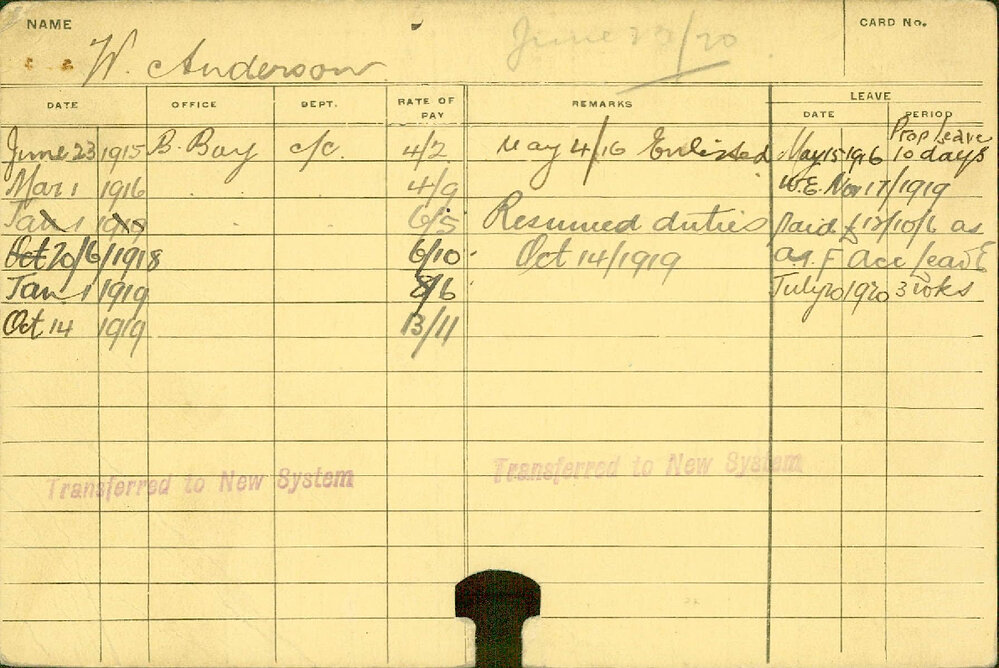 NAME
CARD No.
June 23/20
W. Anderson
DATE OFFICE DEPT. RATE OF PAY REMARKS LEAVE
DATE PERIOD
June 23 1915 B. Bay c/c. 4/2 May 4/16 Enlisted May 15 1916 Prop leave 10 days
Mar 1 1916 4/9 W.E. Nov 17/1919
Jan 1 1918 6/5 Resumed duties Paid £13/10/6 as
Oct 20/6/1918 6/10 Oct 14/1919 A.I.F acc leave
Jan 1 1919 8/6 July 20 1920 3 wks
Oct 14 1919 13/11
Transferred to New System
Transferred to New System